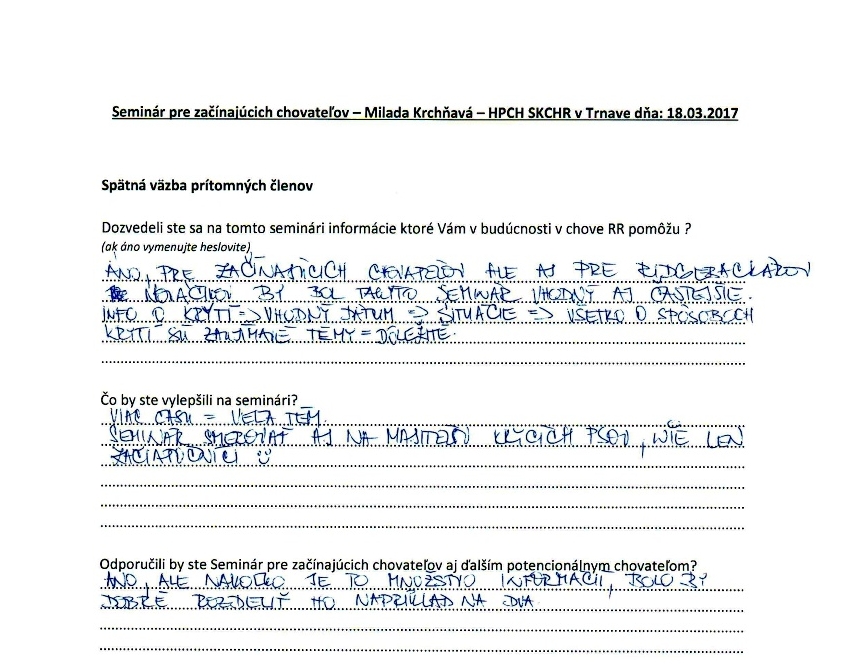 Seminár pre začínajúcich chovateľov – Milada Krchňavá – HPCH SKCHR v Trnave dňa: 18.03.2017
Spätná väzba prítomných členov
Dozvedeli ste sa na tomto seminári informácie ktoré Vám v budúcnosti v chove RR pomôžu ?
(ak áno vymenujte heslovite)
ÁNO, PRE ZAČÍNAJÚCICH CHOVATEĽOV ALE AJ PRE RIDGEBACKÁROV
NOVÁČIKOV BY BOL TAKÝTO SEMINÁR VHODNÝ AJ ČASTEJŠIE.
INFO O KRYTÍ => VHODNÝ DÁTUM => SITUÁCIE => VŠETKO O SPÔSOBOCH
KRYTÍ SÚ ZAUJÍMAVÉ TÉMY = DÔLEŽITÉ.
Čo by ste vylepšili na seminári?
VIAC ČASU = VEĽA TÉM.
SEMINÁR SMEROVAŤ AJ NA MAJITEĽOV KRÝCICH PSOV, NIE LEN
ZAČIATOČNÍCI
Odporučili by ste Seminár pre začínajúcich chovateľov aj ďalším potencionálnym chovateľom?
ÁNO, ALE NAKOĽKO JE TO MNOŽSTVO INFORMÁCII, BOLO BY
DOBRÉ ROZDELIŤ HO NAPRÍKLAD NA DVA.